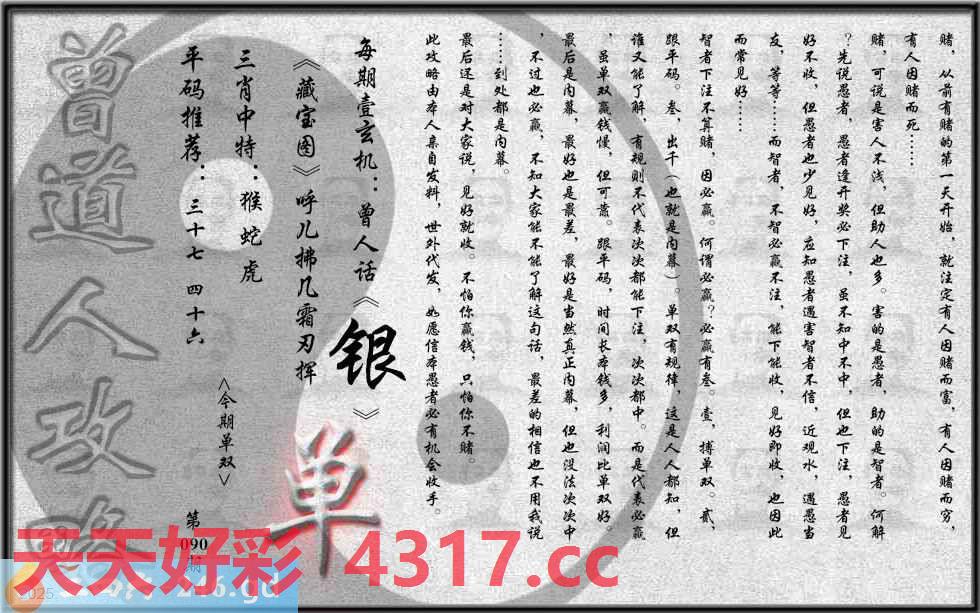 赌，从前有赌的第一天开始，就注定有人因赌而富，有人因赌而穷，
有人因赌而死……
赌，可说是害人不浅，但助人也多。害的是愚者，助的是智者。何解
？先说愚者，愚者逢开奖必下注，虽不知中不中，但也下注，愚者见
好不收，但愚者也少见好，应知愚者遇害智者不信，近观水，遇愚当
友，等等……而智者，不智必赢不注，能下能收，见好即收，也因此
而常见好……
智者下注不算赌，因必赢。何谓必赢？必赢有叁。壹，搏单双。贰，
跟平码。叁，出千（也就是内幕）。单双有规律，这是人人都知，但
谁又能了解，有规则不代表次次都能下注，次次都中。而是代表必赢
，虽单双赢钱慢，但可靠。跟平码，时间长本钱多，利润比单双好。
最后是内幕，最好也是最差，最好是当然真正内幕，但也没法次次中
，不过也必赢，不知大家能不能了解这句话，最差的相信也不用我说
……到处都是内幕。
最后还是对大家说，见好就收。不怕你赢钱，只怕你不赌。
此攻略由本人亲自发料，世外代发，如愿信本愚者必有机会收手。
每期壹玄机：曾人话《银》
《藏宝图》呼儿拂几霜刃挥
三肖中特：猴蛇虎
平码推荐：三十七 四十六
<今期单双>
单
第090期
曾道人攻略
天天好彩 4317.cc
2025
246.gd